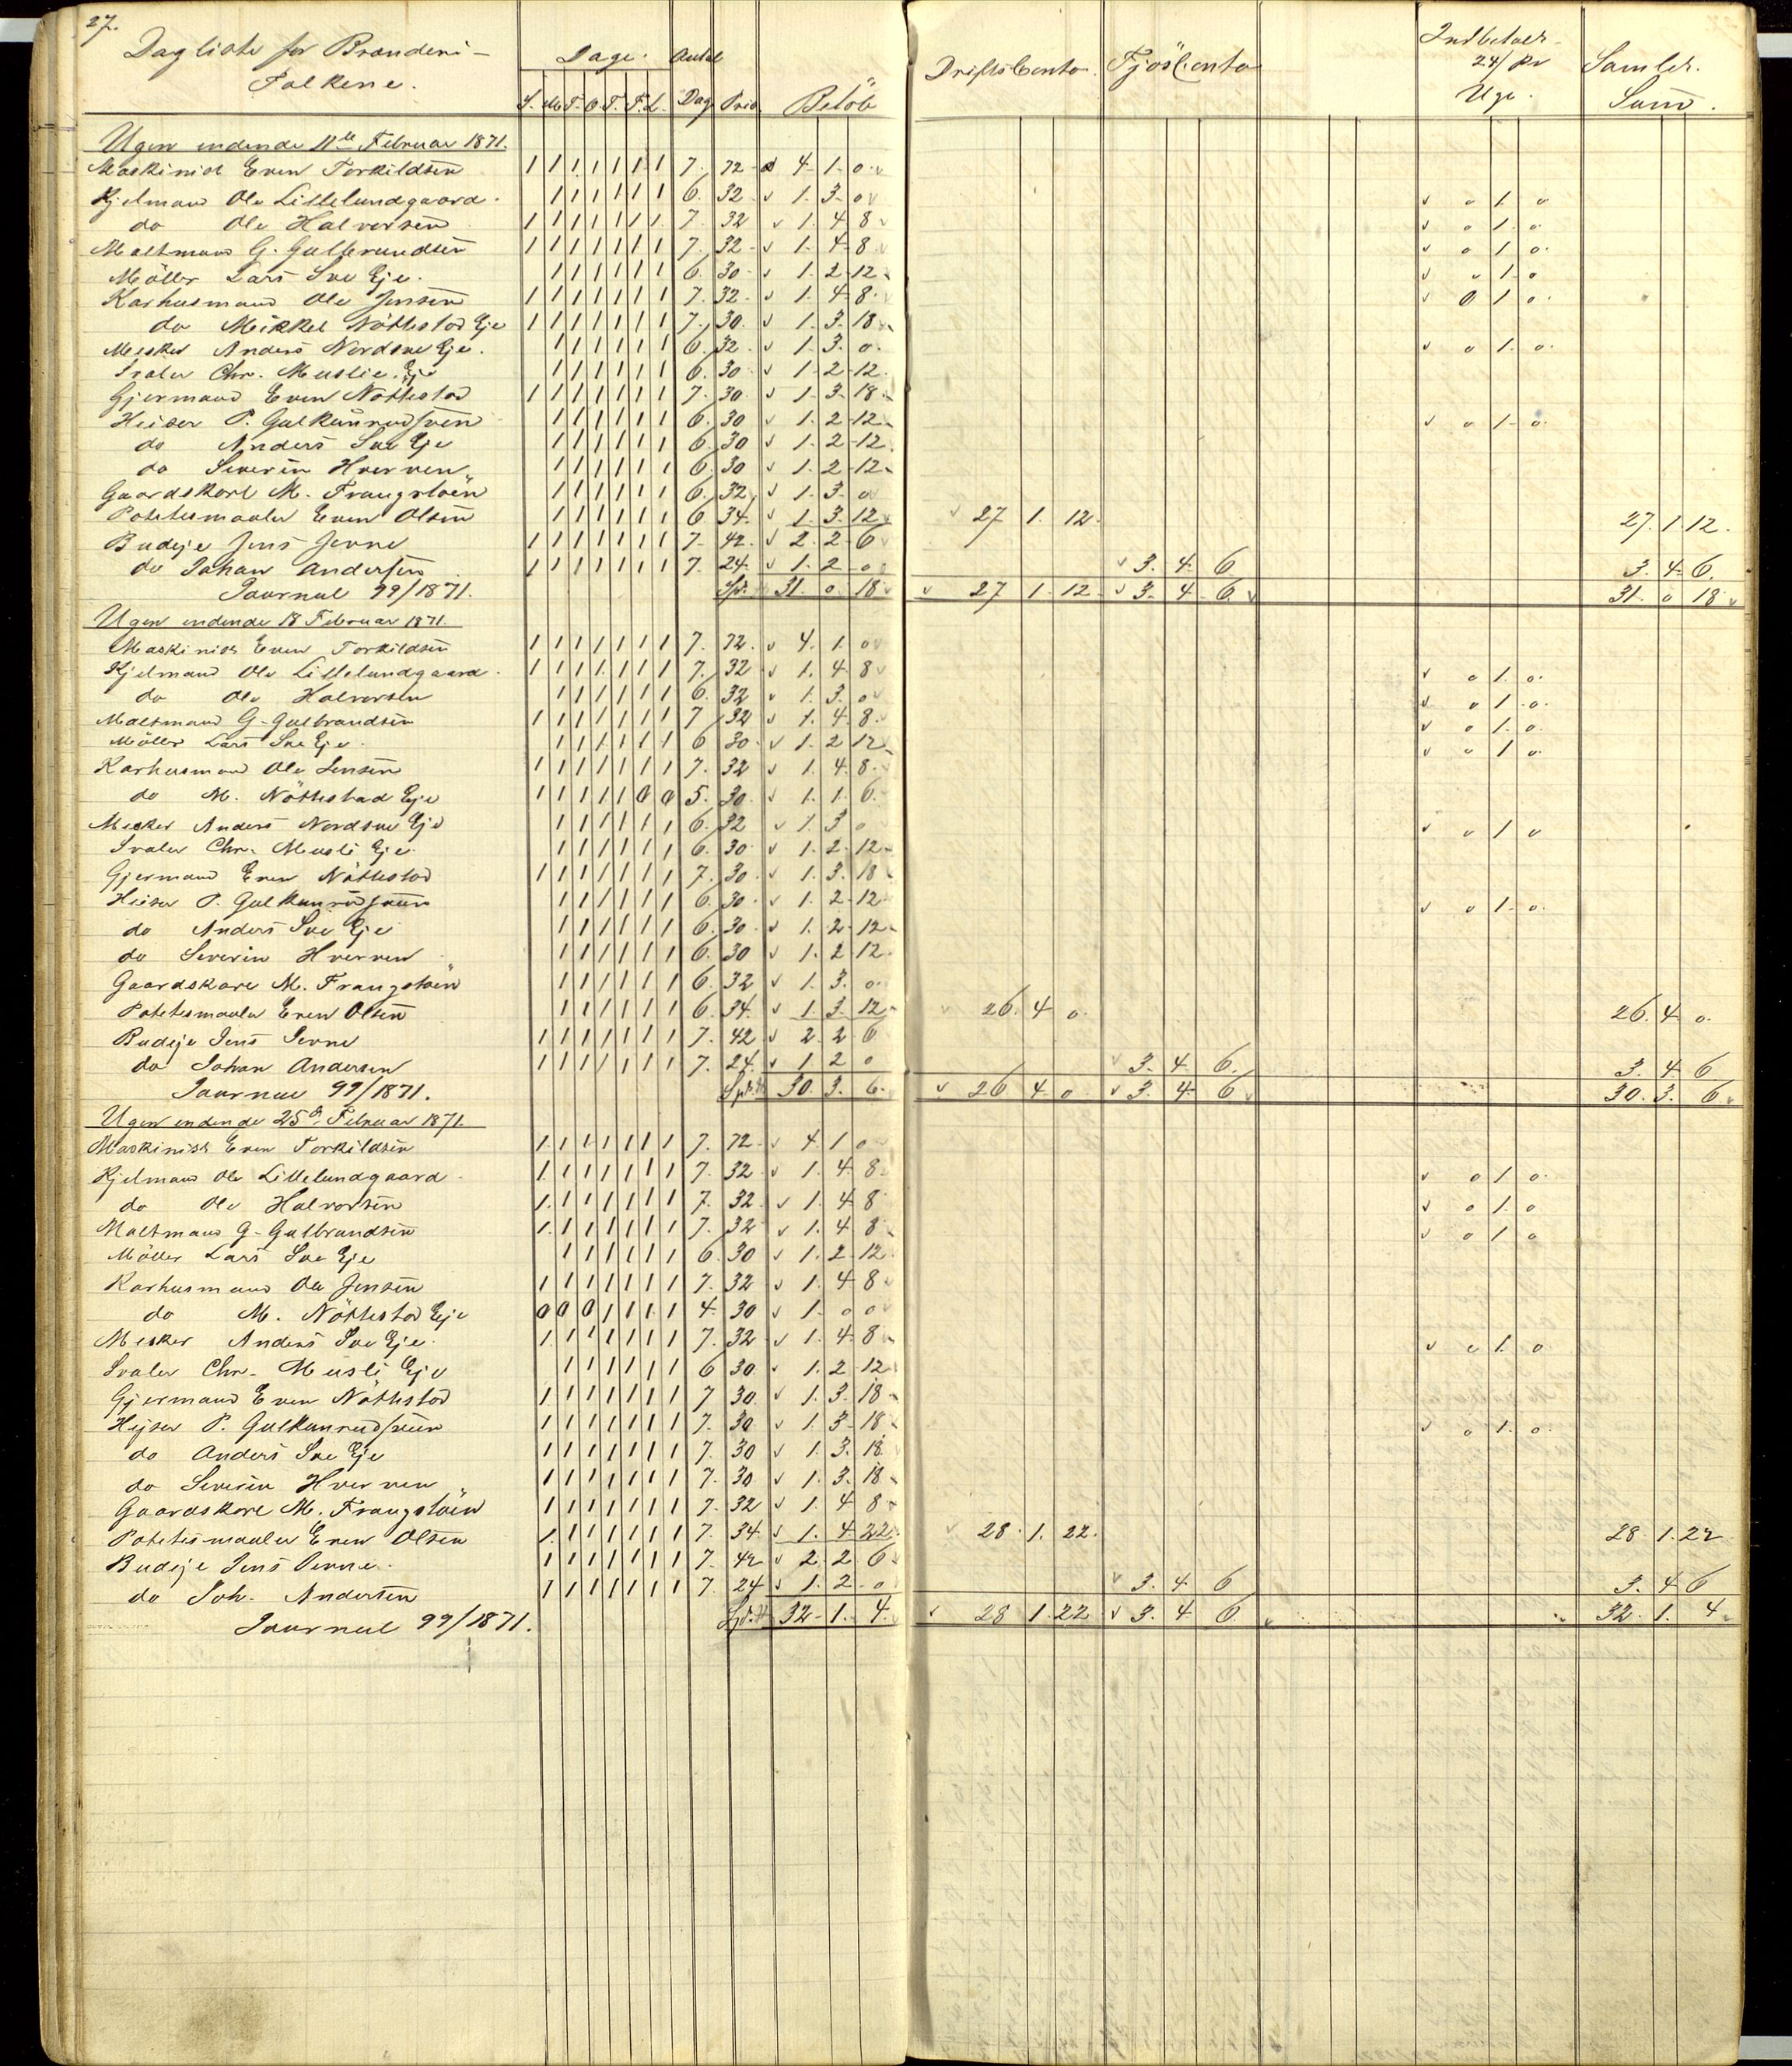 27.
Dagliste for Brænderi-
Folkene.
Dage. Antal
S. M. T. O. T. F. L. Dag Pris Beløb
Driftsconto. Fjösconto Indbetaler 24/ Pr Uge. Samlet Sum.
Ugen endende 11te Februar 1871.
Maskinist Even Torkildsen 1 1 1 1 1 1 1 7. 72 4 1 0
Kjelmand Ole Lillelundgaard 1 1 1 1 1 1 6. 32 1. 3 0 0 1 0
do Ole Halvorsen 1 1 1 1 1 1 1 7. 32 1. 4 8 0 1. 0
Maltmand G. Gulbrandsen 1 1 1 1 1 1 1 7. 32 1. 4 8 0 1. 0
Möller Lars Soe Eje. 1 1 1 1 1 1 6. 30 1. 2 12 0 1 0
Karhusmand Ole Jensen 1 1 1 1 1 1 1 7. 32 1. 4 8 0 1 0
do Mikkel Nöttestad Eje 1 1 1 1 1 1 1 7. 30. 1. 3. 18
Mesker Anders Nordsoe Eje. 1 1 1 1 1 1 6. 32 1. 3. 0. 0 1. 0
Svaler Chr. Muslie Eje 1 1 1 1 1 1 6. 30 1 2 12.
Gjermand Even Nöttestad 1 1 1 1 1 1 1 7. 30 1 3 18.
Heiser P. Gulkunrudsveen 1 1 1 1 1 1 6. 30 1. 2 12 0 1 0.
do Anders Soe Eje 1 1 1 1 1 1 6. 30 1. 2 12.
do Severin Hverven 1 1 1 1 1 1 6. 30 1. 2 12
Gaardskarl M. Frangstöen 1 1 1 1 1 1 6. 32 1. 3 0
Potetesmaaler Even Olsen 1 1 1 1 1 1 6 34. 1. 3. 12 27 1. 12. 27. 1. 12.
Budeje Jens Jevne 1 1 1 1 1 1 1 7. 42. 2. 2 6
do Johan Andersen 1 1 1 1 1 1 1 7. 24. 1. 2 0 3. 4. 6 3. 4 6.
Journal 99/1871. Spd. 31. 0. 18 27 1. 12. 3. 4. 6. 31. 0 18
Ugen endende 18 Februar 1871
Maskinist Even Torkildsen 1 1 1 1 1 1 1 7. 72. 4. 1. 0
Kjelmand Ole Lillelundgaard 1 1 1 1 1 1 1 7. 32 1. 4 8 0 1. 0.
do Ole Halvorsen 1 1 1 1 1 1 6. 32 1. 3. 0 0 1. 0.
Maltmand G. Gulbrandsen 1 1 1 1 1 1 1 7 32 1. 4 8. 0 1. 0.
Möller Lars Soe Eje. 1 1 1 1 1 1 6 30. 1 2 12 0 1 0.
Karhusmand Ole Jensen 1 1 1 1 1 1 1 7. 32 1. 4. 8.
do M. Nöttestad Eje 1 1 1 1 1 0 0 5. 30. 1. 1 6.
Mesker Anders Nordsoe Eje 1 1 1 1 1 1 6. 32 1. 3 0 0 1 0
Svaler Chr. Musli Eje. 1 1 1 1 1 1 6. 30 1. 2. 12
Gjermand Even Nöttestad 1 1 1 1 1 1 1 7. 30. 1. 3. 18
Heiser P. Gulkunrudsveen 1 1 1 1 1 1 6. 30. 1. 2 12 0 1. 0.
do Anders Soe Eje 1 1 1 1 1 1 6. 30. 1. 2 12
do Severin Hverven 1 1 1 1 1 1 6. 30 1. 2 12.
Gaardskare M. Frangstöen 1 1 1 1 1 1 6. 32 1. 3. 0.
Potetesmaaler Even Olsen 1 1 1 1 1 1 6. 34. 1. 3. 12 26. 4 0. 26. 4 0.
Budeje Jens Jevne 1 1 1 1 1 1 1 7. 42 2. 2 6
do Johan Andersen 1 1 1 1 1 1 1 7. 24. 1 2 0 3. 4 6. 3. 4. 6
Journal 99/1871. Spd. 30. 3. 6. 26 4 0 3. 4 6 30. 3. 6
Ugen endende 25de Februar 1871.
Maskinist Even Torkildsen 1 1 1 1 1 1 1 7. 72 4. 1 0
Kjelmand Ole Lillelundgaard 1 1 1 1 1 1 1 7. 32 1. 4. 8. 0 1 0.
do Ole Halvorsen 1 1 1 1 1 1 1 7. 32 1. 4 8 0 1. 0
Maltmand G. Gulbrandsen 1 1 1 1 1 1 1 7. 32 1. 4 8 0 1 0
Möller Lars Soe Eje 1 1 1 1 1 1 6. 30 1. 2 12
Karhusmand Ole Jensen 1 1 1 1 1 1 1 7. 32 1. 4 8
do M. Nöttestad Eje 0 0 0 1 1 1 1 4. 30 1. 0 0
Mesker Anders Soe Eje 1 1 1 1 1 1 1 7. 32 1. 4. 8 0 1. 0
Svaler Chr. Musli Eje 1 1 1 1 1 1 6 30. 1. 2 12
Gjermand Even Nöttestad 1 1 1 1 1 1 1 7 30. 1. 3. 18
Hejser P. Gulkunrudsveen 1 1 1 1 1 1 1 7. 30 1. 3 18 0 1. 0.
do Anders Soe Eje 1 1 1 1 1 1 1 7. 30 1. 3. 18.
do Severin Hverven 1 1 1 1 1 1 1 7. 30 1. 3. 18
Gaardskare M. Frangstöen 1 1 1 1 1 1 1 7. 32 1. 4 8
Potetesmaaler Even Olsen 1 1 1 1 1 1 1 7. 34. 1. 4. 22. 28. 1. 22. 28. 1. 22
Budeje Jens Jevne. 1 1 1 1 1 1 1 7. 42 2. 2 6
do Joh. Andersen 1 1 1 1 1 1 1 7. 24 1. 2 0 3. 4. 6 3. 4 6
Journal 99/1871. Spd. 32 1. 4. 28 1. 22 3. 4 6 32. 1. 4